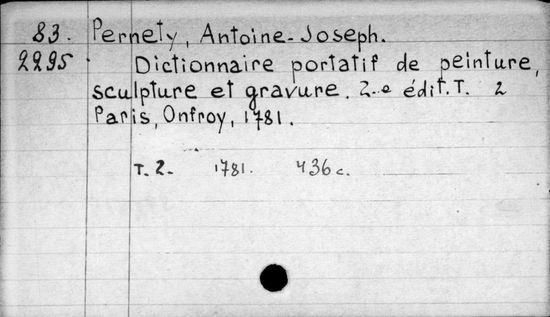 83. Pernety, Antoine-Joseph.
2295. Dictionnaire portatif de peinture,
sculpture et gravure. 2-e édit. T. 2
Paris, Onfroy, 1781.
T. 2. 1781. 436 c.